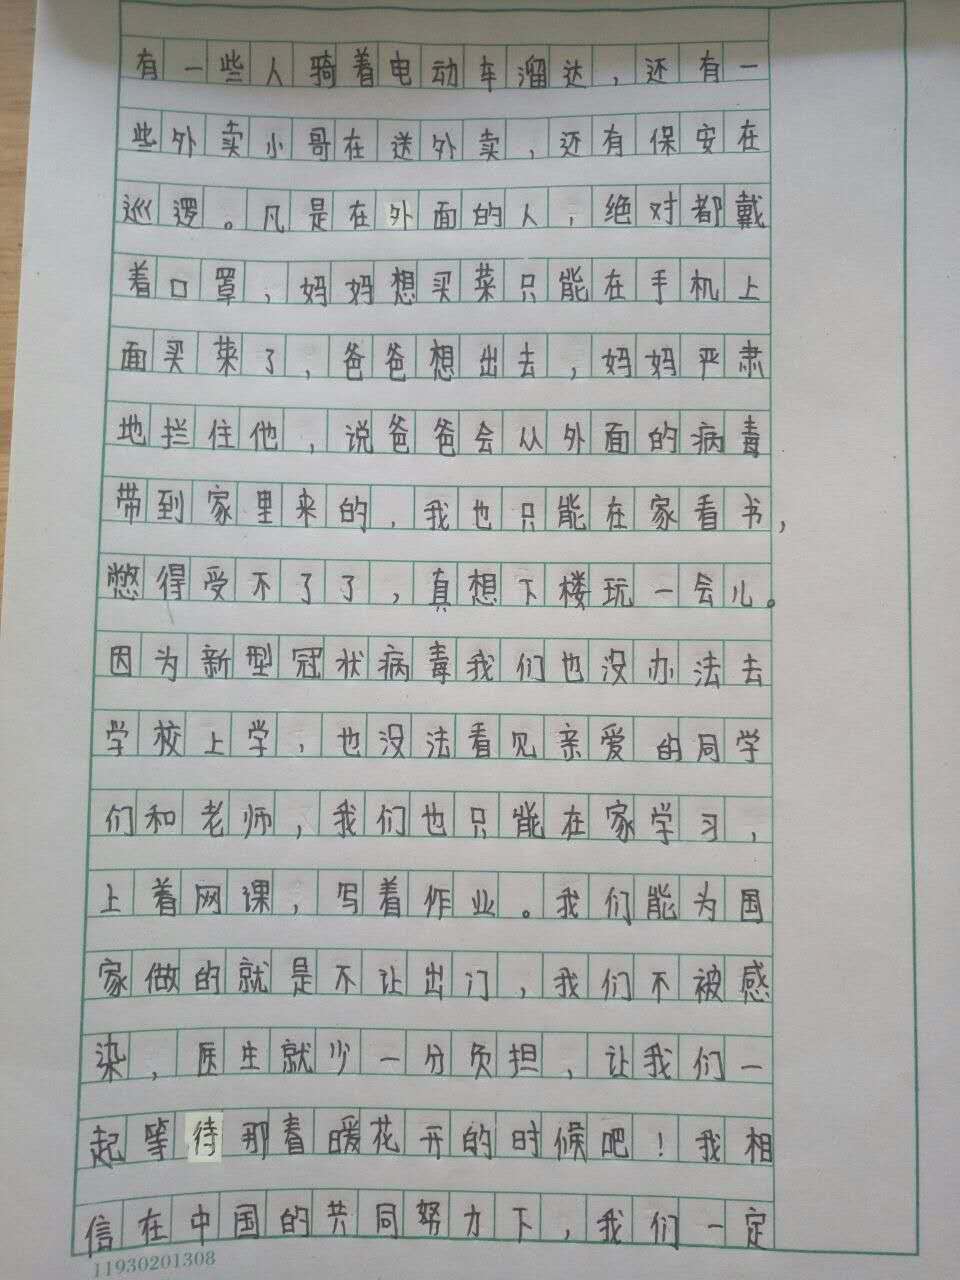 有一些人骑着电动车溜达，还有一
些外卖小哥在送外卖，还有保安在
巡逻。凡是在外面的人，绝对都戴
着口罩，妈妈想买菜只能在手机上
面买菜了，爸爸想出去，妈妈严肃
地拦住他，说爸爸会从外面的病毒
带到家里来的，我也只能在家看书，
憋得受不了了，真想下楼玩一会儿。
因为新型冠状病毒我们也没办法去
学校上学，也没法看见亲爱的同学
们和老师，我们也只能在家学习，
上着网课，写着作业。我们能为国
家做的就是不让出门，我们不被感
染，医生就少一分负担，让我们一
起等待那春暖花开的时候吧！我相
信在中国的共同努力下，我们一定
11930201308